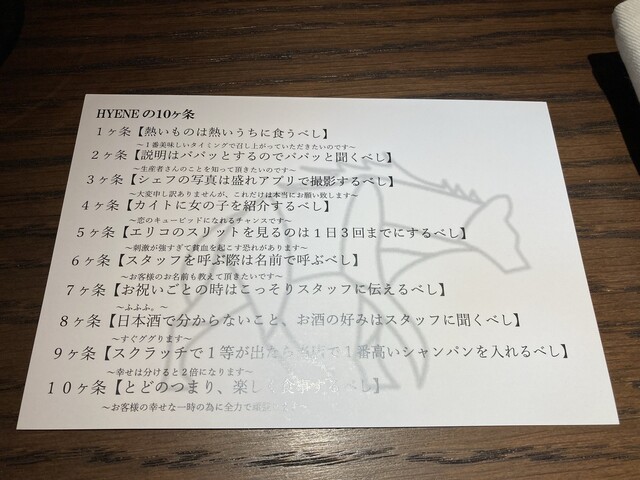 HYENEの10ヶ条
１ヶ条【熱いものは熱いうちに食うべし】
～１番美味しいタイミングで召し上がっていただきたいのです～
２ヶ条【説明はババッとするのでババッと聞くべし】
～生産者さんのことを知って頂きたいのです～
３ヶ条【シェフの写真は盛れアプリで撮影するべし】
～大変申し訳ありませんが、これだけは本当にお願い致します～
４ヶ条【カイトに女の子を紹介するべし】
～恋のキューピッドになれるチャンスです～
５ヶ条【エリコのスリットを見るのは１日３回までにするべし】
～刺激が強すぎて貧血を起こす恐れがあります～
６ヶ条【スタッフを呼ぶ際は名前で呼ぶべし】
～お客様のお名前も教えて頂きたいです～
７ヶ条【お祝いごとの時はこっそりスタッフに伝えるべし】
～ふふふ。～
８ヶ条【日本酒で分からないこと、お酒の好みはスタッフに聞くべし】
～すぐググります～
９ヶ条【スクラッチで１等が出たら当店で１番高いシャンパンを入れるべし】
～幸せは分けると２倍になります～
１０ヶ条【とどのつまり、楽しく食事するべし】
～お客様の幸せな一時の為に全力で